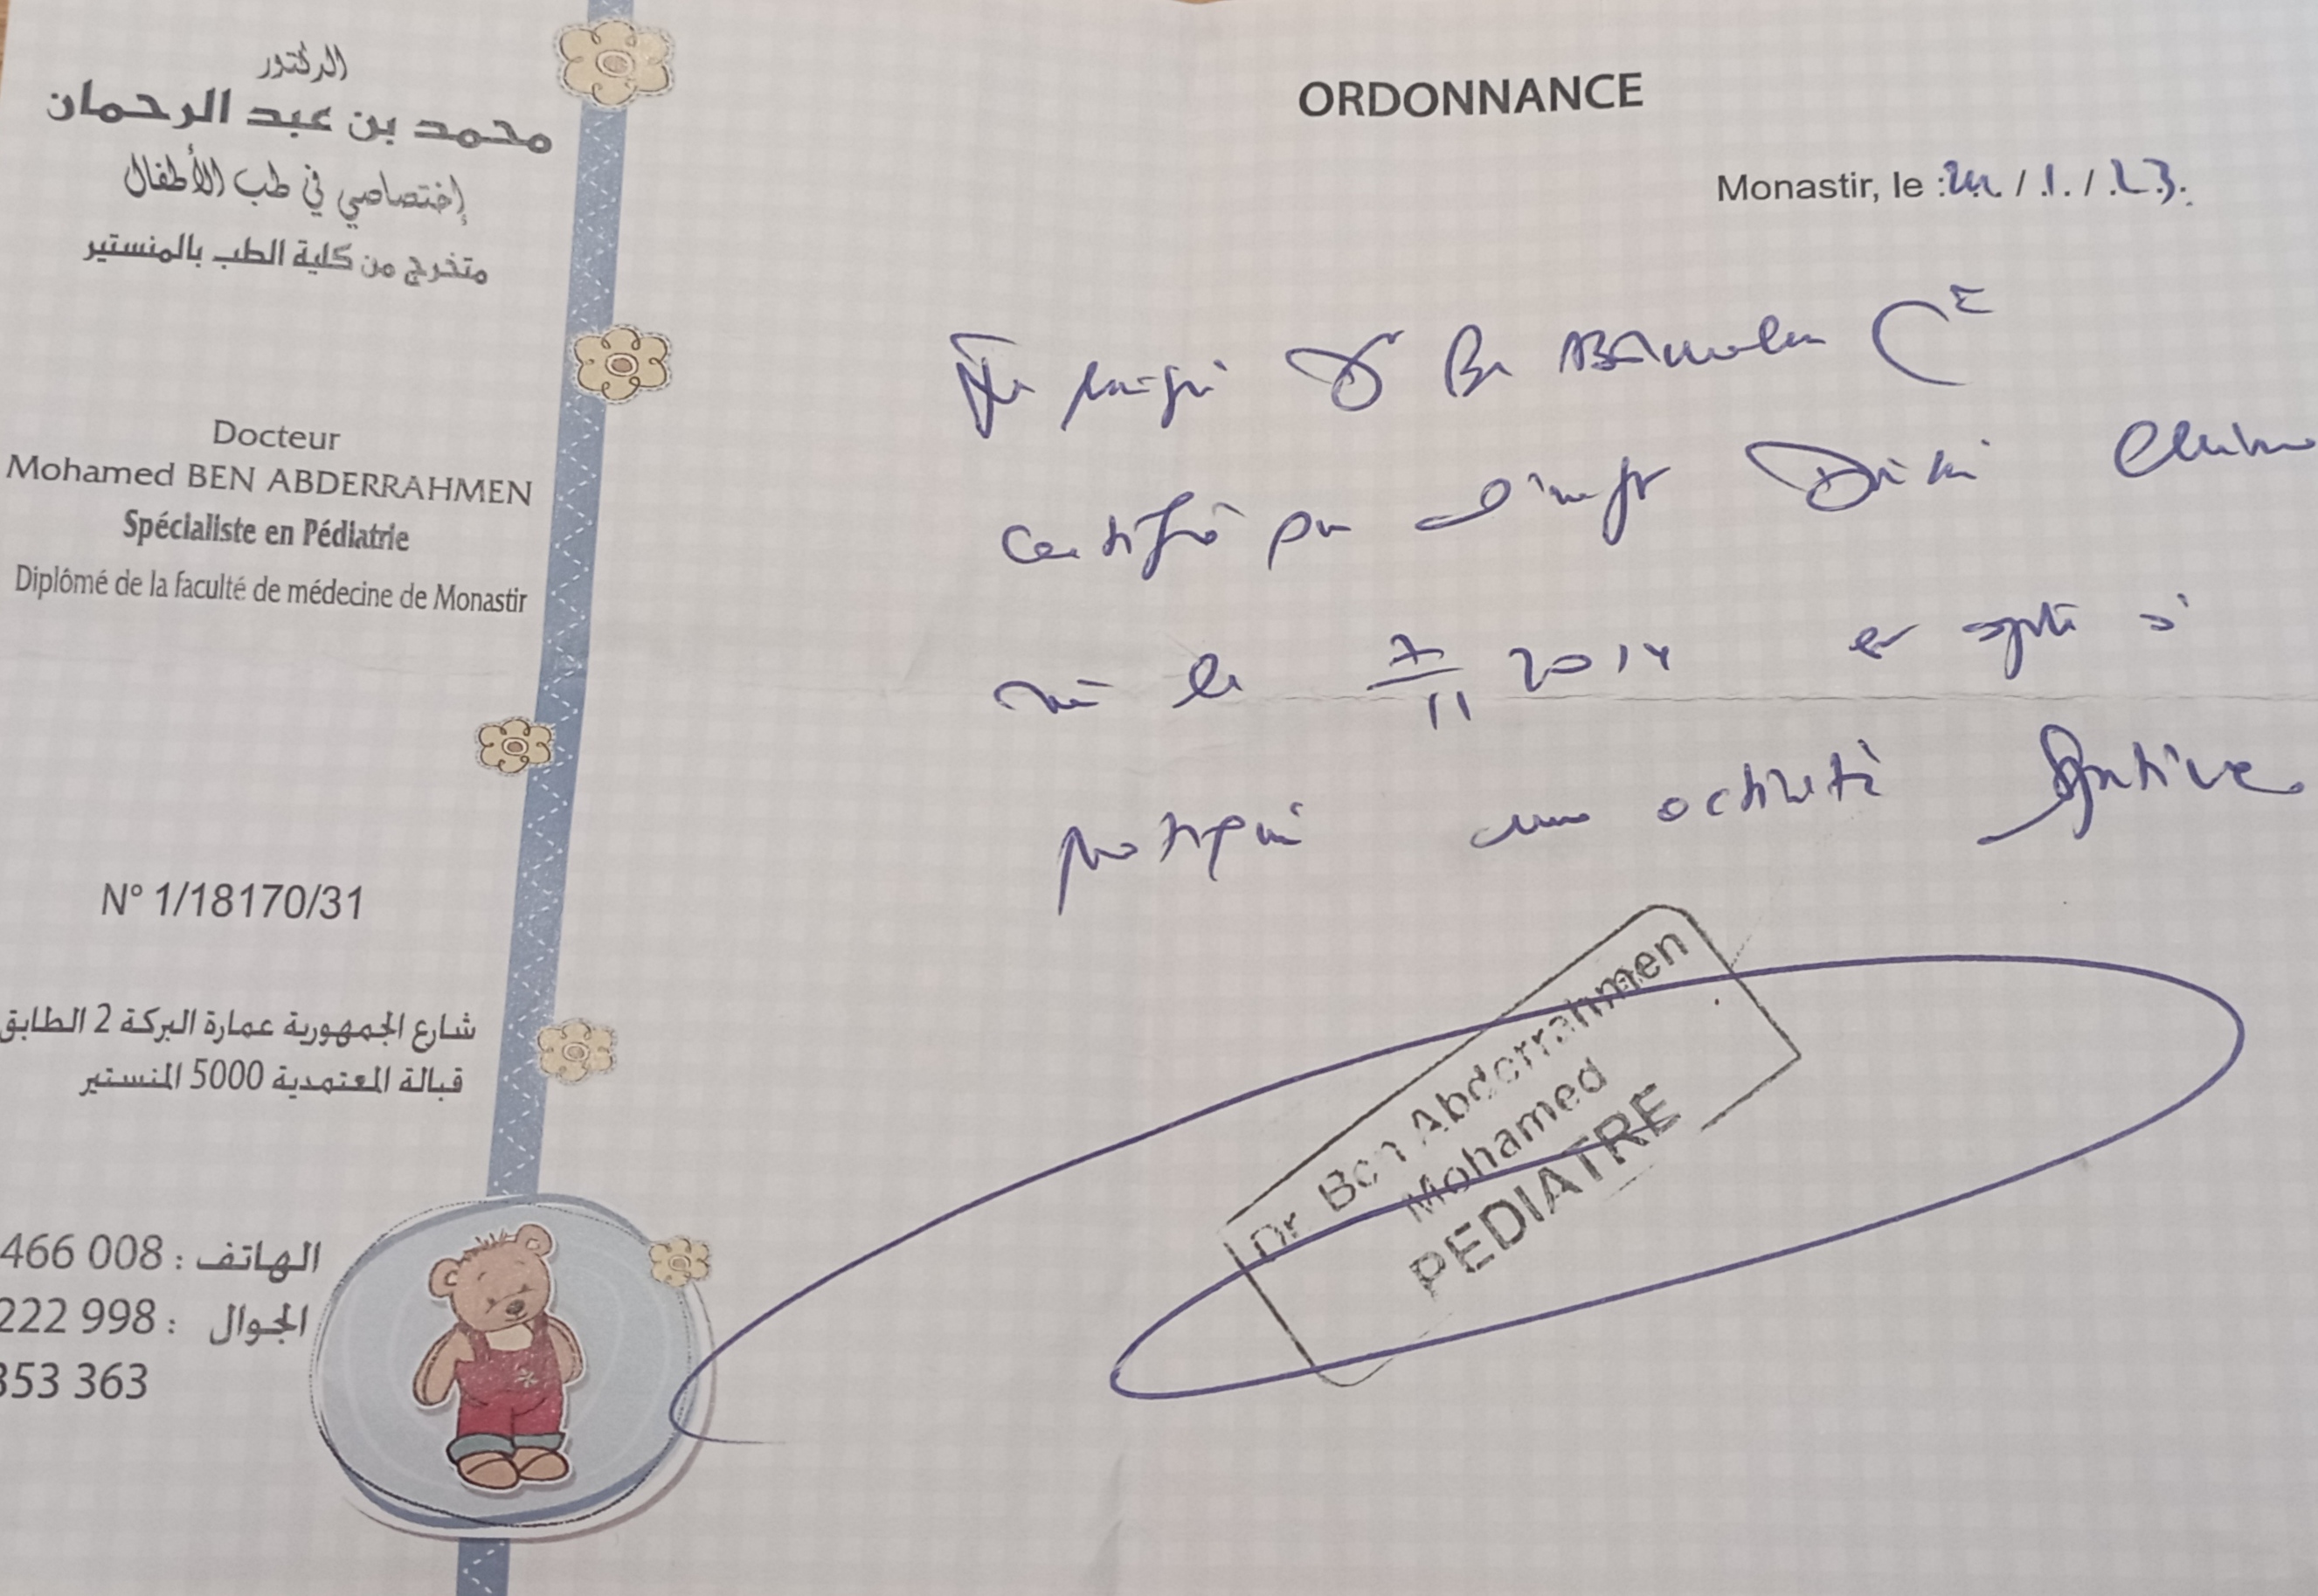 الدكتور
محمد بن عبد الرحمان
إختصاصي في طب الأطفال
متخرج من كلية الطب بالمنستير
Docteur
Mohamed BEN ABDERRAHMEN
Spécialiste en Pédiatrie
Diplômé de la faculté de médecine de Monastir
N° 1/18170/31
شارع الجمهورية عمارة البركة 2 الطابق
قبالة المعتمدية 5000 المنستير
الهاتف : 466 008
الجوال : 222 998
353 363
ORDONNANCE
Monastir, le : / 1 / 23
Je Dr Ben
certifie que
né le 7/11 2014 est apte à
pratiquer une activité sportive
Dr Ben Abderrahmen
Mohamed
PEDIATRE